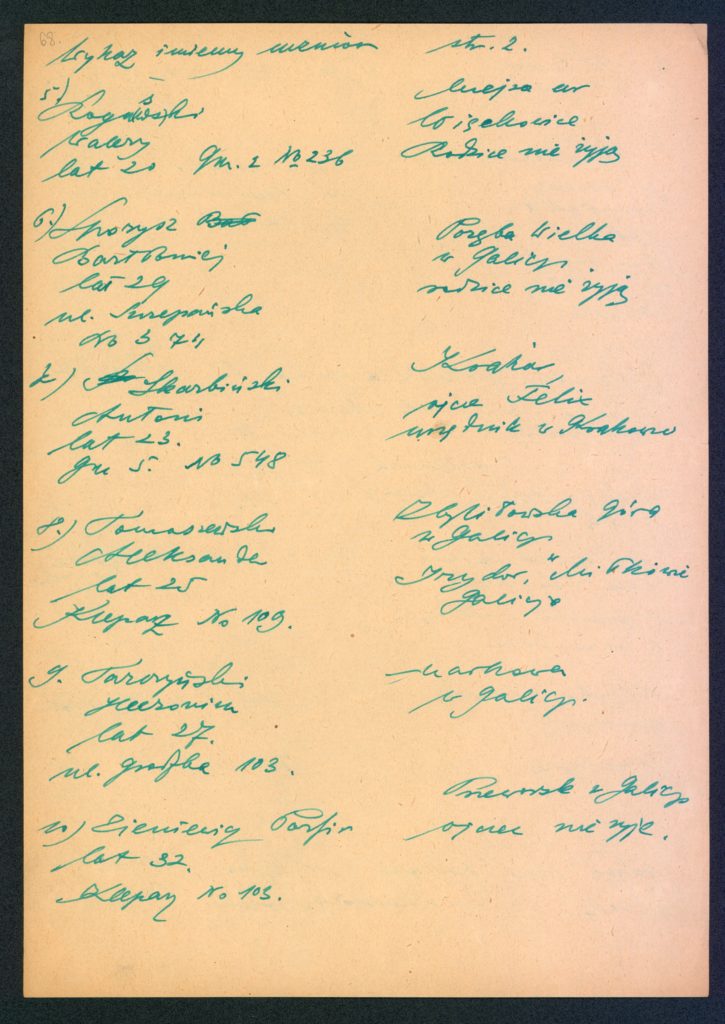 68.
Wykaz imienny uczniów str. 2.
5.) Rogalski
Walery
lat 20 Gm. 2 No 236
Miejsce ur
Więckowice
Rodzice nie żyją
6.) Sporysz
Bartłomiej
lat 29
ul. Szczepańska
No 374
Poręba Wielka
w Galicji
rodzice nie żyją
7.) Skarbiński
Antoni
lat 23.
Gm 5. No 548
Kraków,
ojciec Felix
urzędnik w Krakowie
8.) Tomaszewski
Aleksander
lat 25
Kleparz No 109.
Zbylitowska Góra
w Galicji
Izydor,
Galicja
9. Taroszyński
Hieronim
lat 27.
ul. Grodzka 103.
Markowa
w Galicji.
10) Zieniewicz Porfir
lat 32.
Kleparz No 103.
Przeworsk w Galicji
ojciec nie żyje.